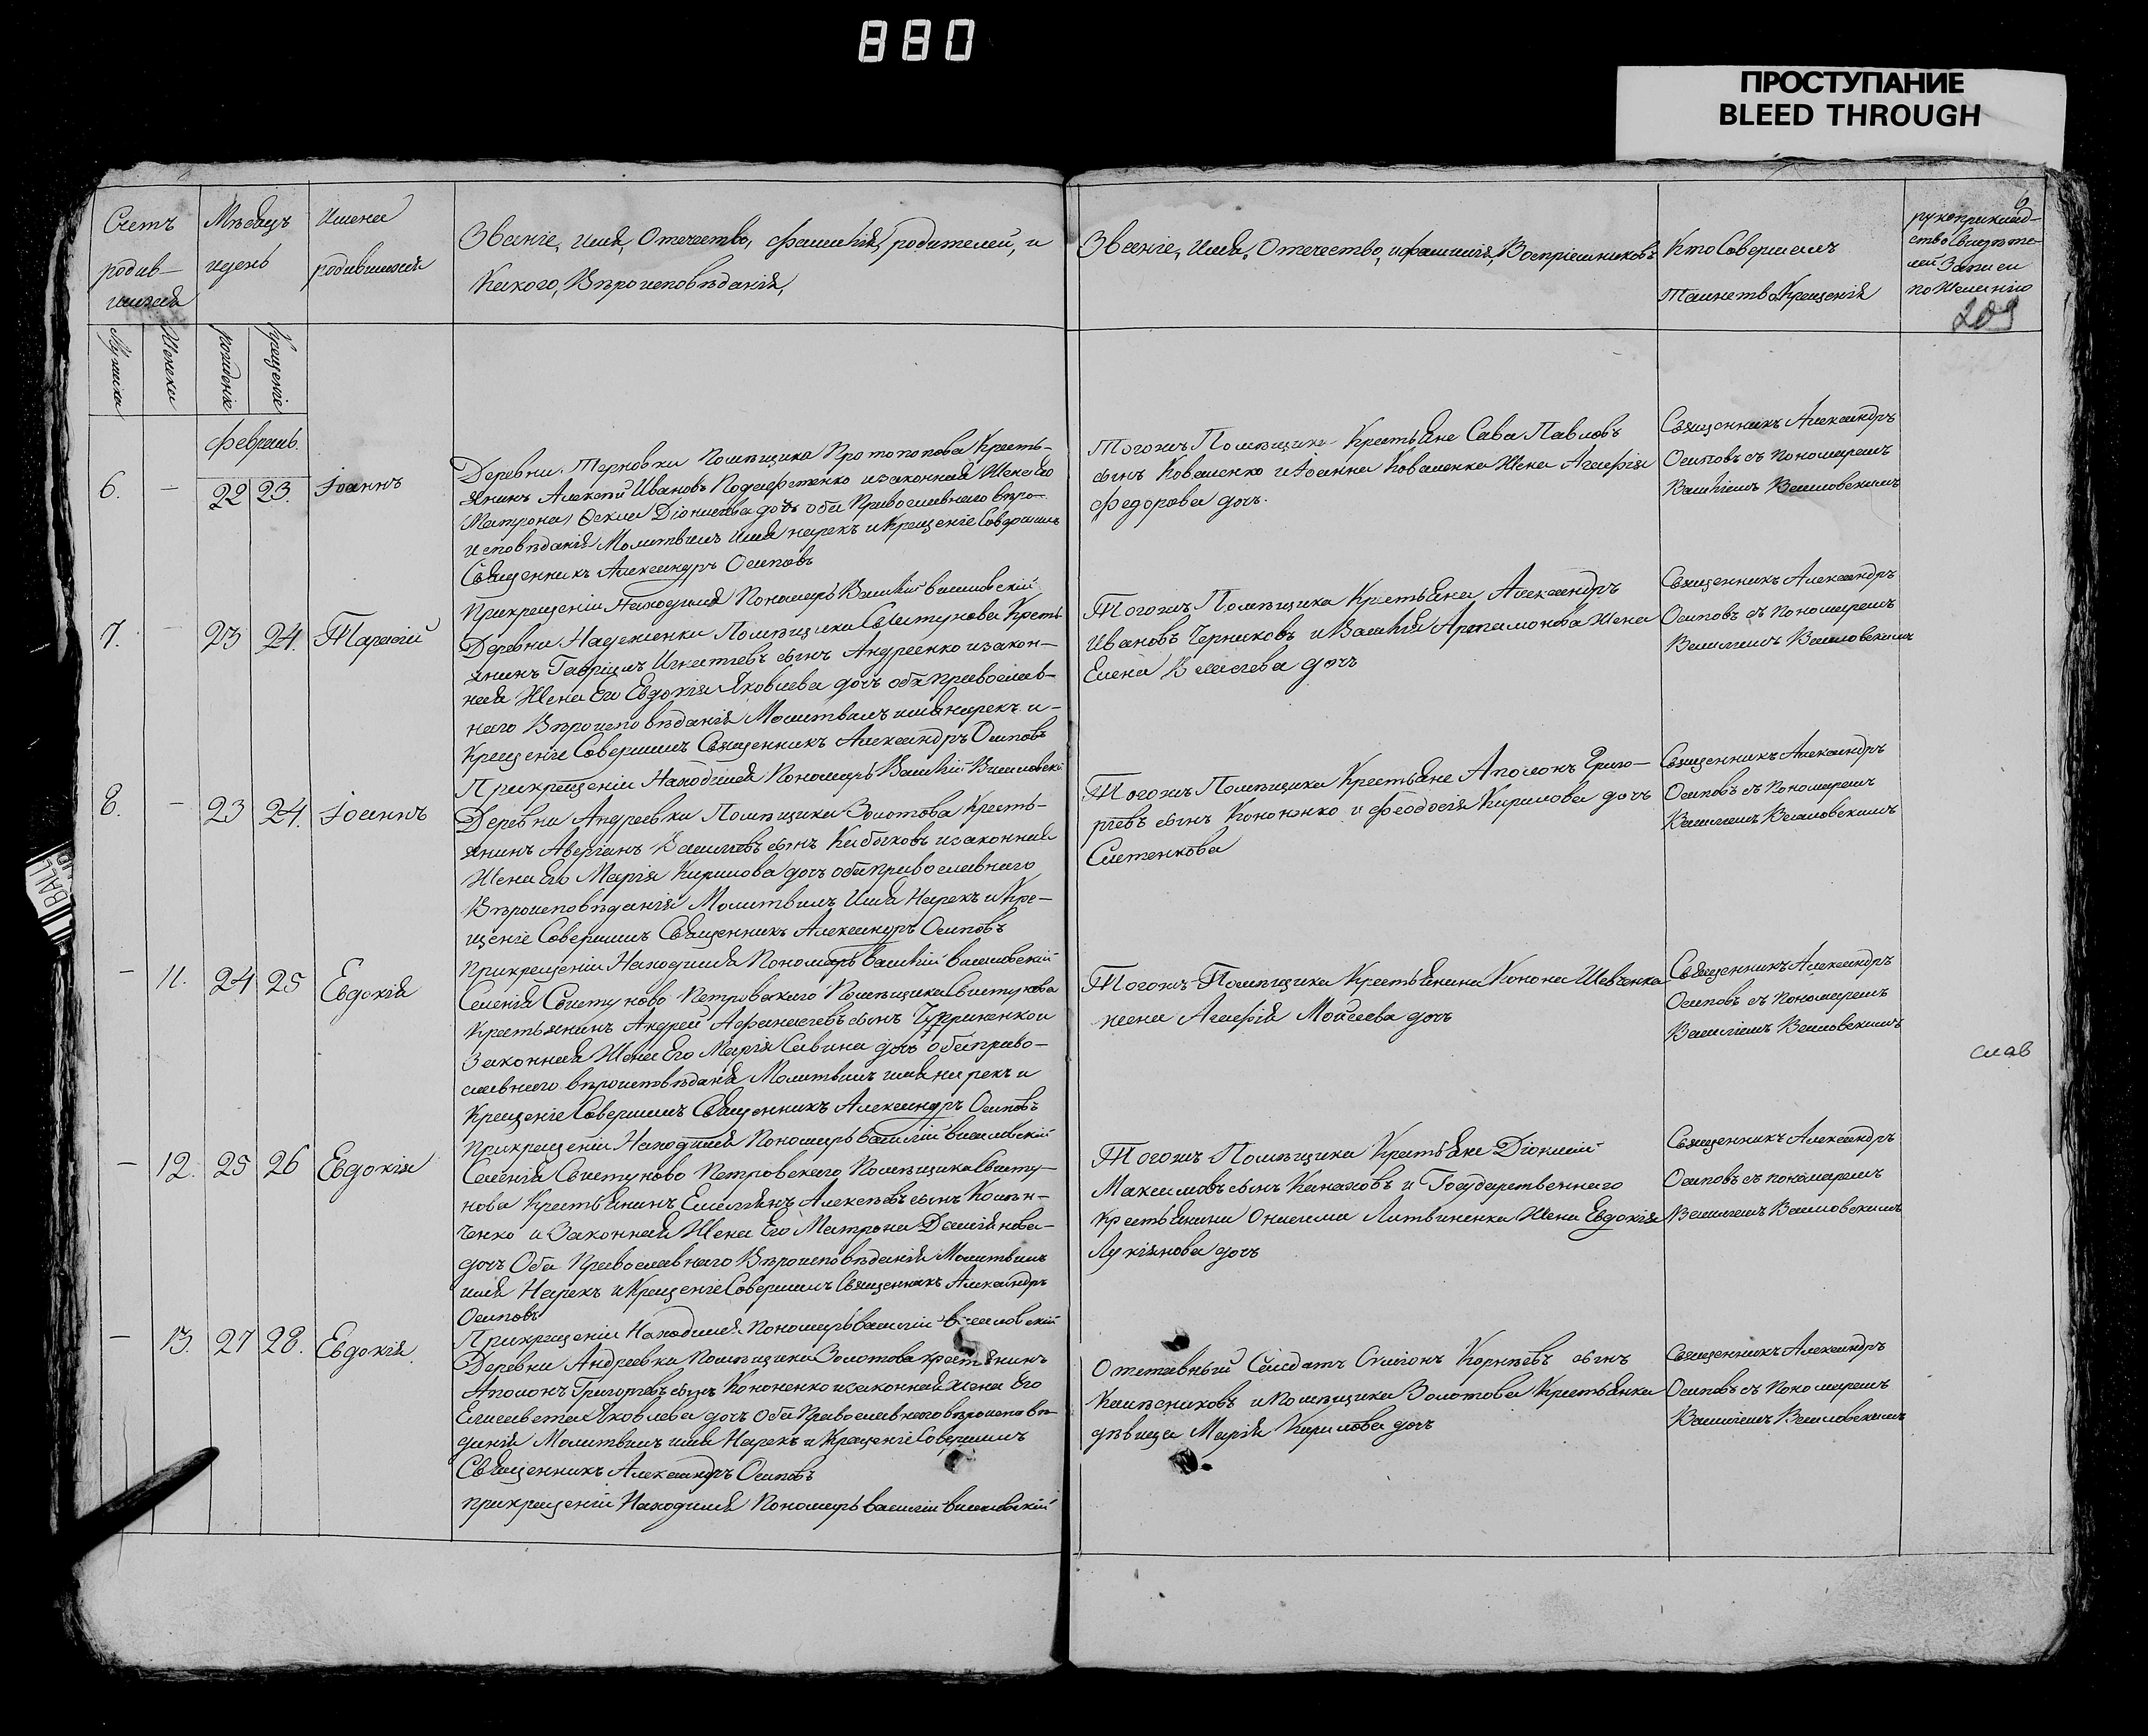 880
ПРОСТУПАНИЕ
BLEED THROUGH
Счетъ
родив-
шихся
Мѣсяцъ
и день
Имена
родившихся
Званіе, имя, Отечество, фамилія, родителей, и
Какого, Вѣроисповѣданія,
Званіе, Имя, Отечество, и фамилія, Воспріемниковъ
Кто Совершалъ
Таинство Крещенія
6
рукоприклад-
ство Свидѣте-
лей Записи
по Желанію
209
Мужска
Женска
рожденіе
Крещеніе
февраль.
6. — 22 23. Іоаннъ
Деревни Терновки Помѣщика Протопопова Кресть-
янинъ Алексѣй Ивановъ и законная Жена Его
Матрона Діонисіева дочь оба Православнаго вѣро-
исповѣданія Молитвилъ Имя нарекъ и Крещеніе Совершилъ
Священникъ Александръ Осиповъ
При крещеніи Находился Пономарь Василій Василовскій
Тогожъ Помѣщика Крестьяне Сава Павловъ
сынъ Коваленко и Іоанна Коваленка Жена Агафія
Федорова дочь.
Священникъ Александръ
Осиповъ съ пономаремъ
Василіемъ Василовскимъ
7. — 23 24. Тарасій
Деревни Надеженки Помѣщика Свистунова Кресть-
янинъ Гавріилъ Игнатіевъ сынъ Андреенко и закон-
ная Жена Его Евдокія Яковлева дочь оба православ-
наго Вѣроисповѣданія Молитвилъ имя нарекъ и-
Крещеніе Совершилъ Священникъ Александръ Осиповъ
При крещеніи Находился Пономарь Василій Василовскій
Тогожъ Помѣщика Крестьяне Александръ
Ивановъ Черниковъ и Василія Артамонова Жена
Елена Власіева дочь
Священникъ Александръ
Осиповъ съ пономаремъ
Василіемъ Василовскимъ
8. — 23 24. Іоаннъ
Деревни Андреевки Помѣщика Золотова Кресть-
янинъ Аверіанъ Василіевъ сынъ Кабаковъ и законная
Жена Его Марія Кирилова дочь оба православнаго
Вѣроисповѣданія Молитвилъ Имя Нарекъ и Кре-
щеніе Совершилъ Священникъ Александръ Осиповъ
При крещеніи Находился Пономарь Василій Василовскій
Тогожъ Помѣщика Крестьяне Аполонъ Григо-
ріевъ сынъ Кононенко и Феодосія Кирилова дочь
Сметенкова
Священникъ Александръ
Осиповъ съ Пономаремъ
Василіемъ Василовскимъ
— 11. 24 25 Евдокія
Селенія Свистуново Петровскаго Помѣщика Свистунова
Крестьянинъ Андрей Афанасіевъ сынъ и
Законная Жена Его Марія Савина дочь оба право-
славнаго вѣроисповѣданія Молитвилъ имя нарекъ и
Крещеніе Совершилъ Священникъ Александръ Осиповъ
При крещеніи Находился Пономарь Василій Василовскій
Тогожъ Помѣщика Крестьянина Конона Шевченка
жена Агафія Мойсеева дочь
Священникъ Александръ
Осиповъ съ пономаремъ
Василіемъ Василовскимъ
слав
— 12. 25 26 Евдокія
Селенія Свистуново Петровскаго Помѣщика Свисту-
нова Крестьянинъ Емеліянъ Алексѣевъ сынъ
и Законная Жена Его Матрона Даміянова-
дочь Оба Православнаго Вѣроисповѣданія Молитвилъ
имя Нарекъ и Крещеніе Совершилъ Священникъ Александръ
Осиповъ
При крещеніи Находился Пономарь Василій Василовскій
Тогожъ Помѣщика Крестьяне Діонисій
Максимовъ сынъ Канаховъ и Государственнаго
Крестьянина Онисима Литвиненка Жена Евдокія
Лукіянова дочь
Священникъ Александръ
Осиповъ съ пономаремъ
Василіемъ Василовскимъ
— 13. 27 28. Евдокія.
Деревни Андреевки Помѣщика Золотова крестьянинъ
Аполонъ Григоріевъ сынъ Кононенко и законная жена Его
Елисавета Яковлева дочь Оба Православнаго вѣроисповѣ-
данія Молитвилъ имя Нарекъ и Крещеніе Совершилъ
Священникъ Александръ Осиповъ
при крещеніи Находился Пономарь Василій Василовскій
Отставный Салдатъ Симіонъ Корнѣевъ сынъ
и помѣщика Золотова Крестьянка
дѣвица Марія Кирилова дочь
Священникъ Александръ
Осиповъ съ Пономаремъ
Василіемъ Василовскимъ